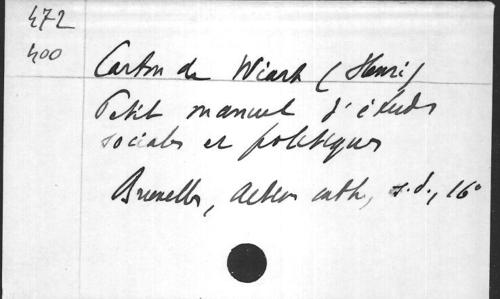 472
400
Carton de Wiart (Henri)
Petit manuel d'études
sociales et politiques
Bruxelles, Action cath., s.d., 16°